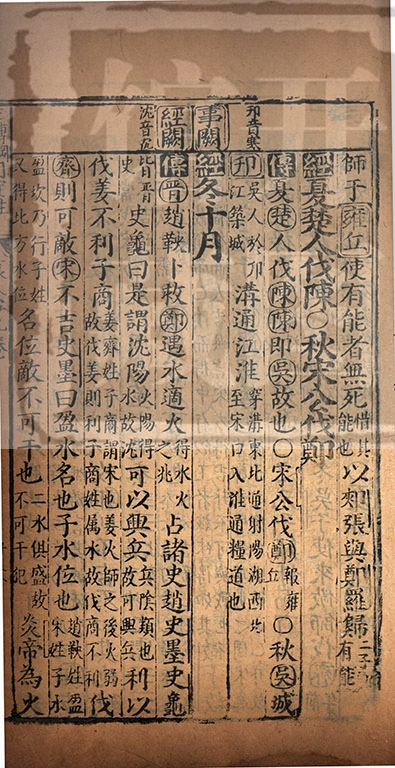 邗音寒
師于雍丘使有能者無死惜其能也以郟張與鄭羅歸二子
有能
經夏楚人伐陳○秋宋公伐鄭
傳夏楚人伐陳陳即吳故也○宋公伐鄭報雍丘○秋吳城
邗吳人於邗江築城溝通江淮穿溝東北通射陽湖西北至宋口入淮通糧道也
事闕
經冬十月
經闕
傳晉趙鞅卜救鄭遇水適火得水火之兆占諸史趙史墨史龜
沈音
皆晉史史龜曰是謂沈陽火陽得水故沈可以興兵兵陰類也故可興兵利以
伐姜不利子商姜齊姓子商謂宋也姜火師之後火弱故伐姜則利子商姓属水故伐商不利伐
齊則可敵宋不吉史墨曰盈水名也子水位也趙鞅姓盈宋姓子水
盈坎乃行子姓又得北方水位名位敵不可干也二水俱盛故不可干犯炎帝為火